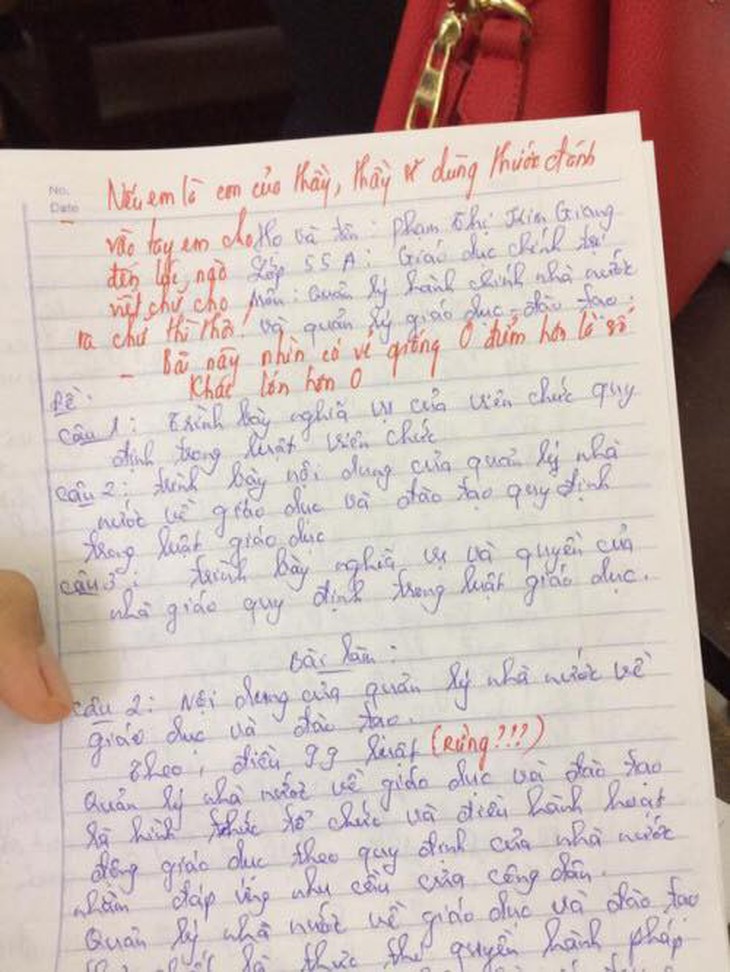 No.
Date
- Nếu em là con của thầy, thầy sẽ dùng thước đánh
vào tay em cho Họ và tên: Phạm Thị Kiên Giang
đến lúc nào Lớp 55A: Giáo dục chính trị
viết chữ cho Môn: Quản lý hành chính nhà nước
ra chữ thì thôi! và quản lý giáo dục - đào tạo.
- Bài này nhìn có vẻ giống 0 điểm hơn là số
khác lớn hơn 0
Đề:
Câu 1: Trình bày nghĩa vụ của viên chức quy
định trong luật viên chức
Câu 2: trình bày nội dung của quản lý nhà
nước về giáo dục và đào tạo quy định
trong luật giáo dục
Câu 3: trình bày nghĩa vụ và quyền của
nhà giáo quy định trong luật giáo dục.
Bài làm:
Câu 2: Nội dung của quản lý nhà nước về
giáo dục và đào tạo.
Theo, điều 99 luật (Rừng???)
Quản lý nhà nước về giáo dục và đào tạo
là hình thức tổ chức và điều hành hoạt
động giáo dục theo quy định của nhà nước
nhằm đáp ứng nhu cầu của công dân.
Quản lý nhà nước về giáo dục và đào tạo
là thực thi quyền hành pháp